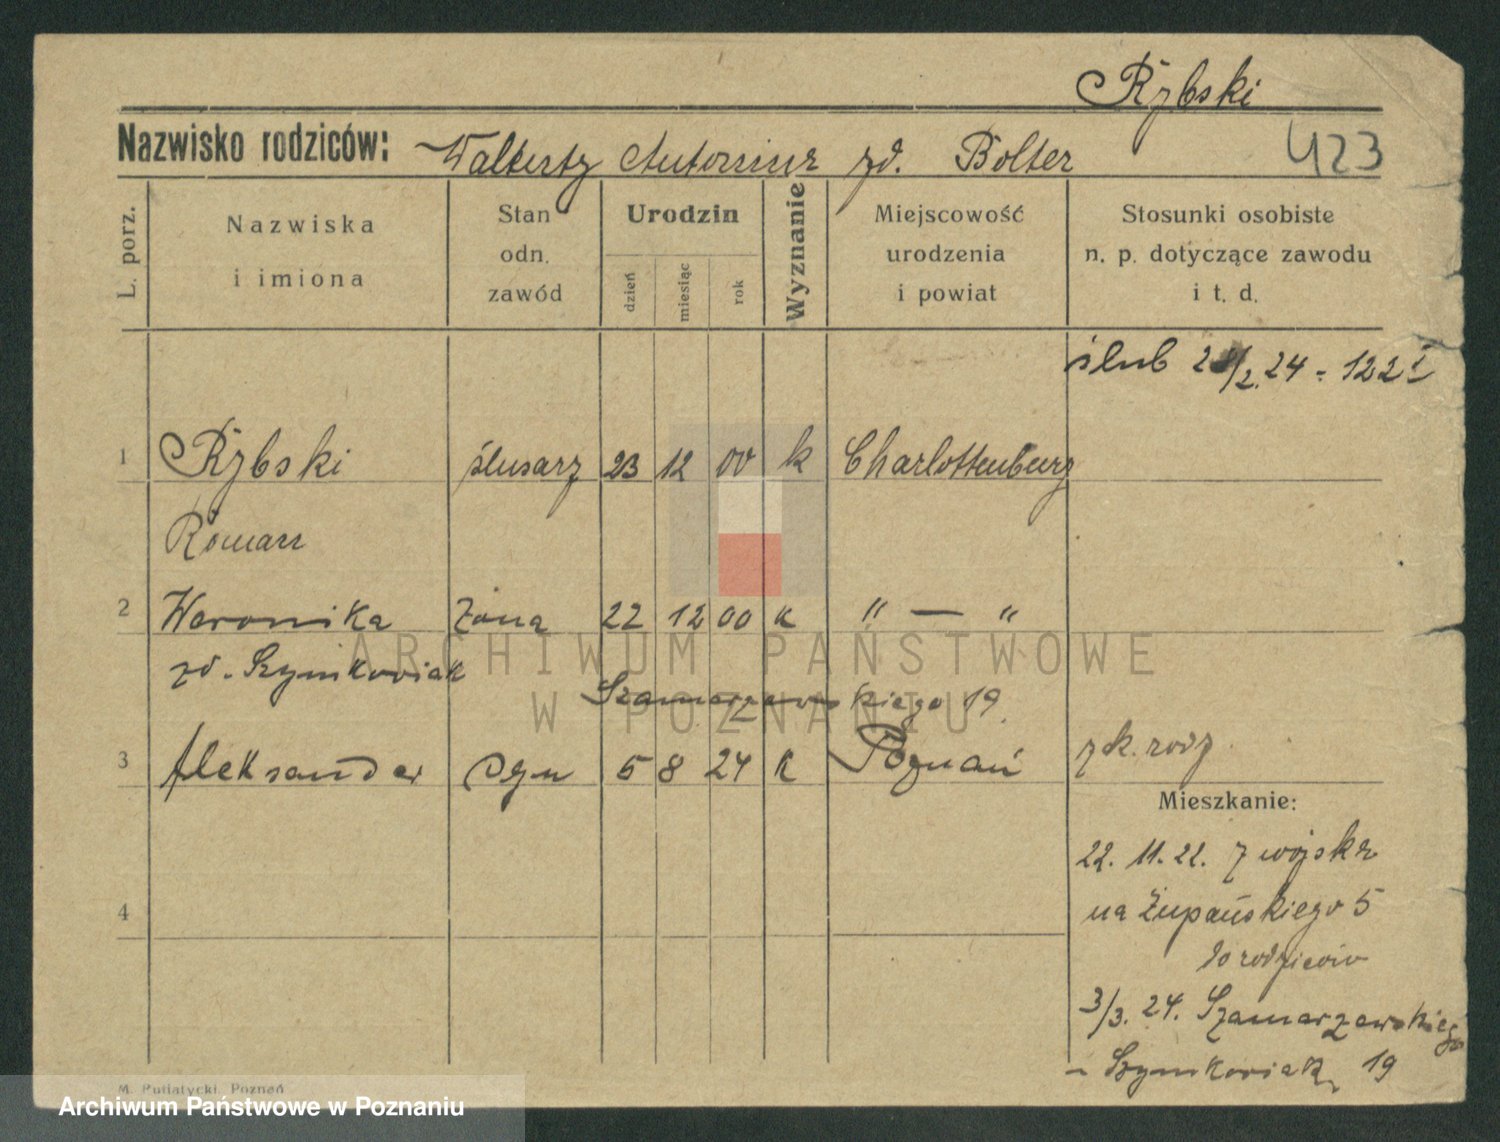 Rybski
Nazwisko rodziców: Walenty Antonina zd. Bolter
423
L. porz.
Nazwiska
i imiona
Stan
odn.
zawód
Urodzin
dzień
miesiąc
rok
Wyznanie
Miejscowość
urodzenia
i powiat
Stosunki osobiste
n. p. dotyczące zawodu
i t. d.
ślub 2 /2.24 - 122 I
1 Rybski ślusarz 23 12 00 k Charlottenburg
Roman
2 Weronika żona 22 12 00 k " — "
zd. Szymkowiak
Szamarzewskiego 19
3 Aleksander syn 5 8 24 k Poznań
Mieszkanie:
22. 11. 22. z wojska
na Żupańskiego 5
do rodziców
4
3/3. 24. Szamarzewskiego
- Szymkowiak 19
M. Putiatycki, Poznań
ARCHIWUM PAŃSTWOWE
W POZNANIU
Archiwum Państwowe w Poznaniu